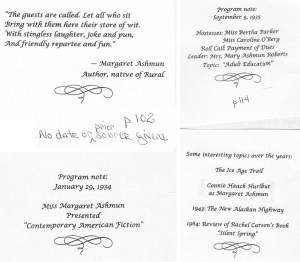 "The guests are called. Let all who sit
Bring with them here their store of wit.
With stingless laughter, joke and pun,
And friendly repartee and fun."
— Margaret Ashmun
Author, native of Rural
p. 108
No date or prior source given
Program note:
September 5, 1935
Hostesses: Miss Bertha Parker
Miss Caroline O'Berg
Roll Call Payment of Dues
Leader: Mrs. Mary Ashmun Roberts
Topic: "Adult Education"
p114
Program note:
January 29, 1934
Miss Margaret Ashmun
Presented
"Contemporary American Fiction"
Some interesting topics over the years:
The Ice Age Trail
Connie Haack Hurlbut
as Margaret Ashmun
1942: The New Alaskan Highway
1964: Review of Rachel Carson's Book
"Silent Spring"